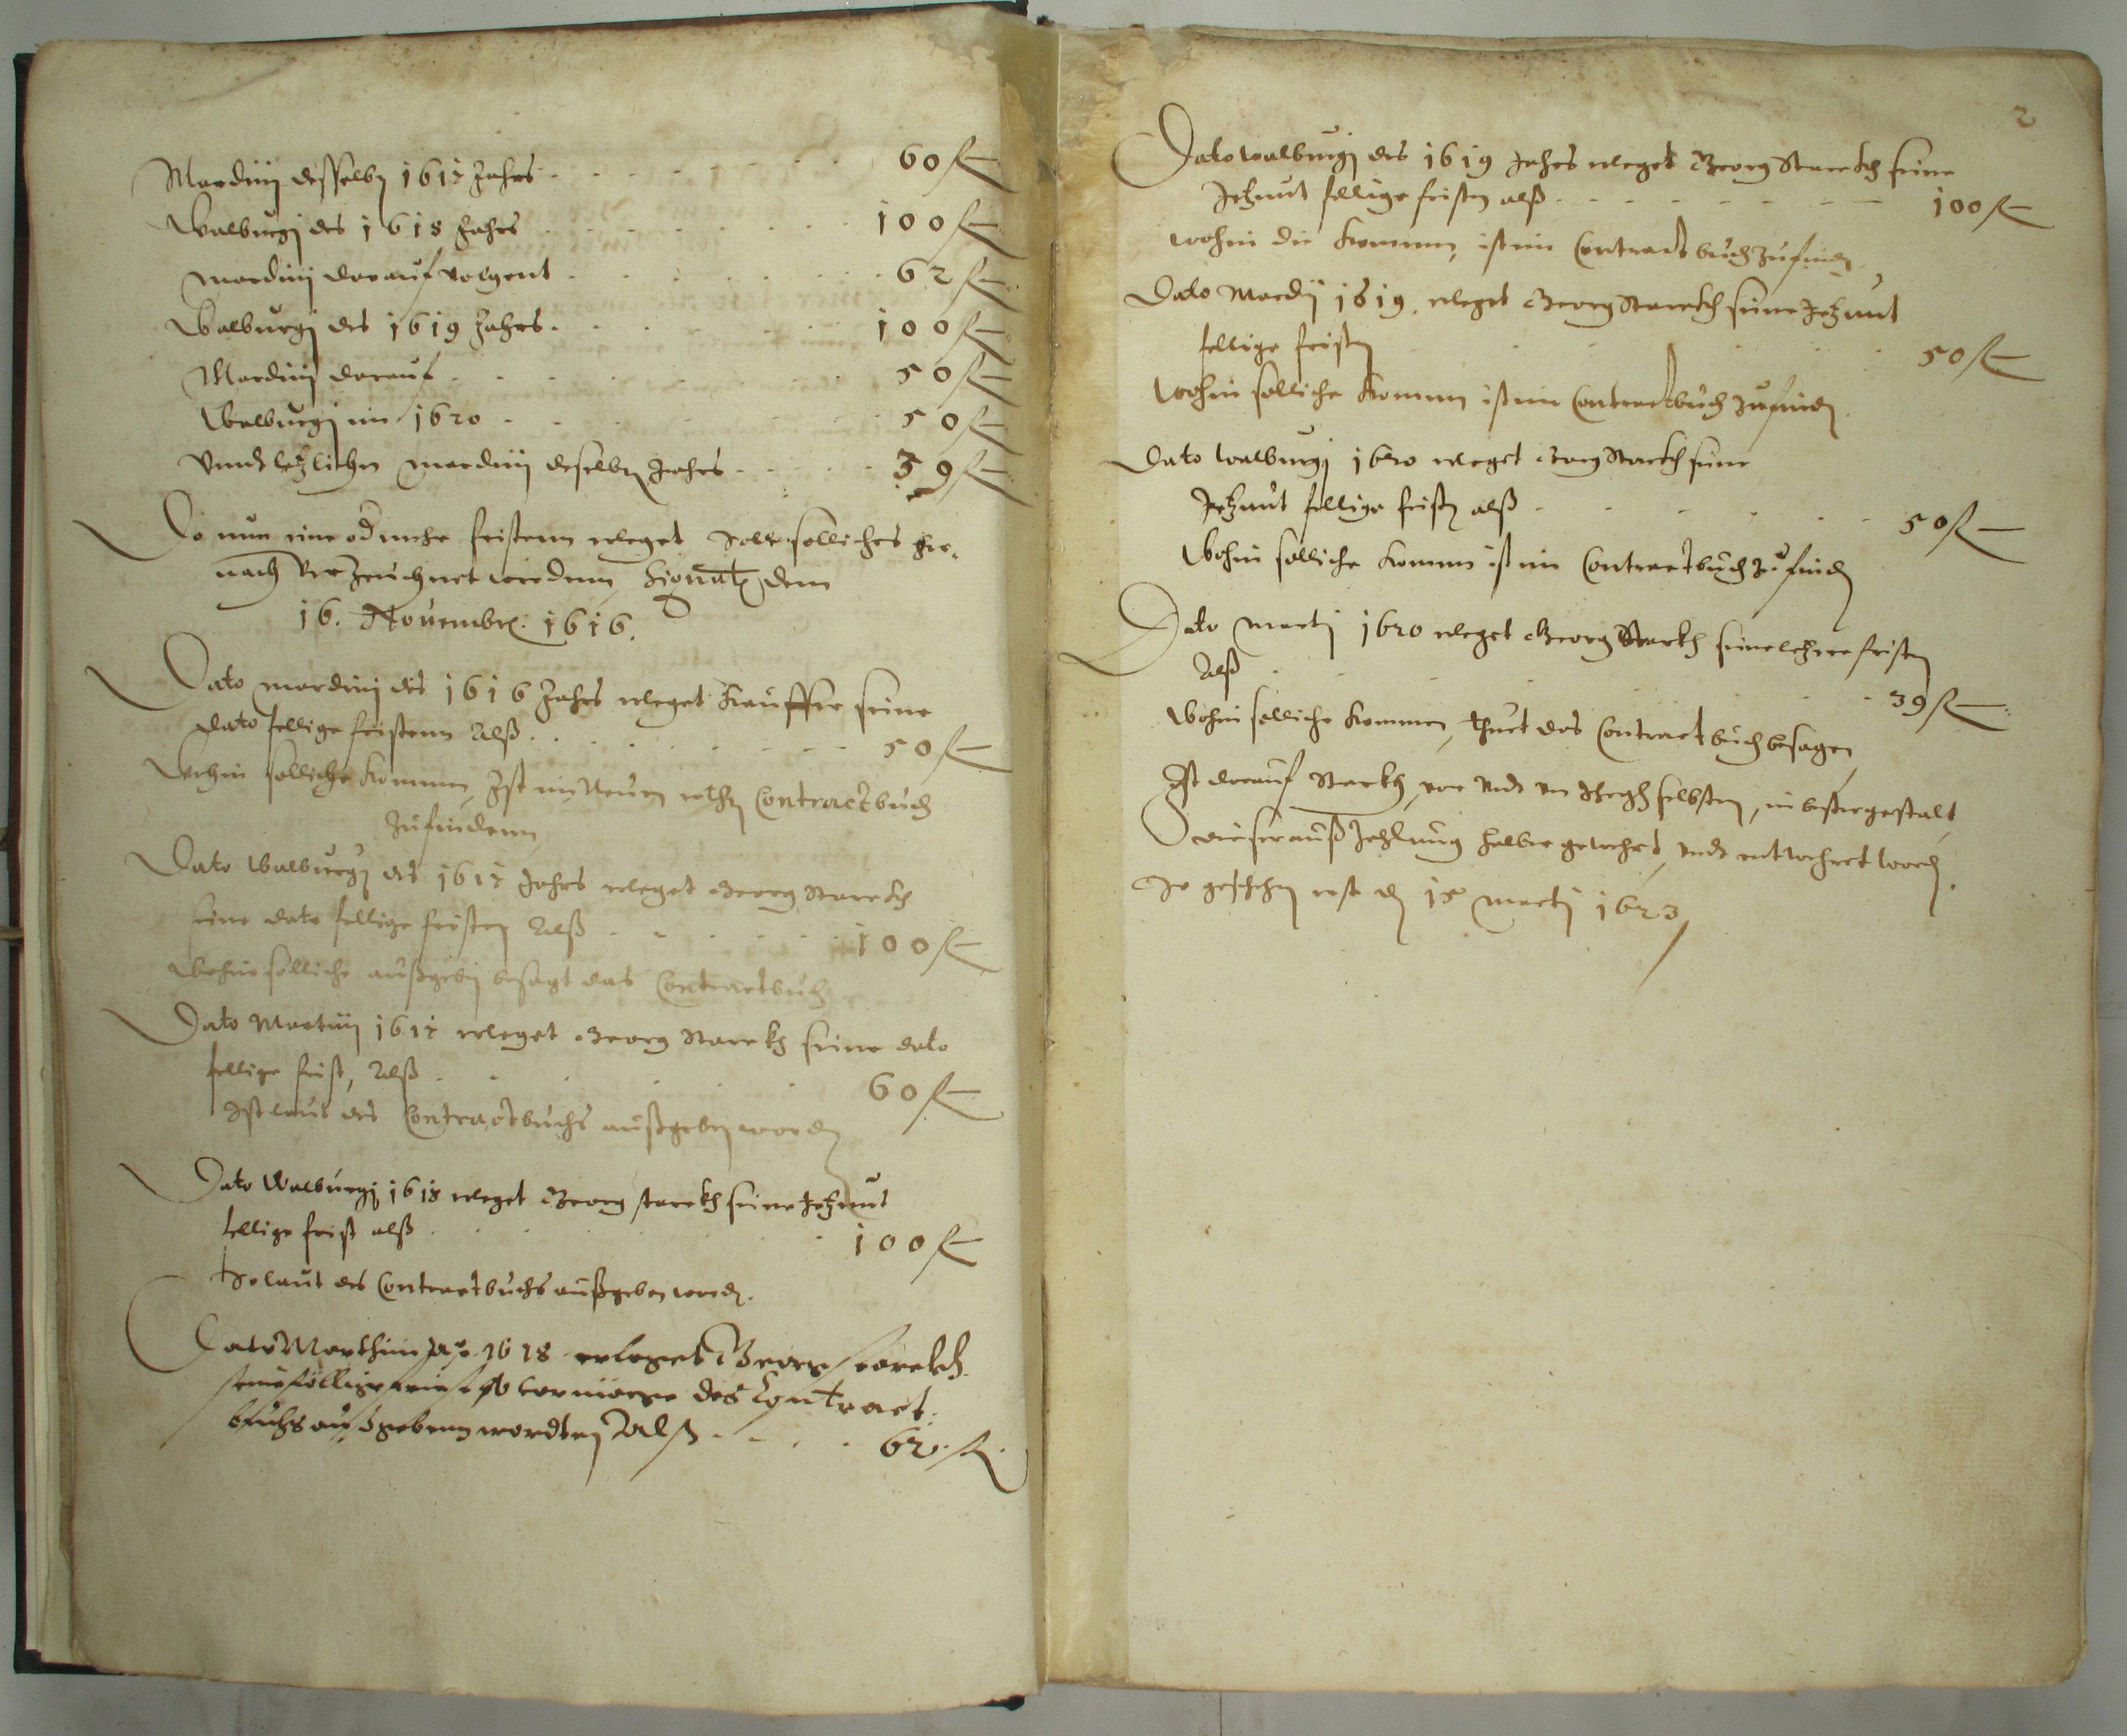 Martinj desselb 1617 Jahrs - - - - - 60 fl
Walburgj des 1618 Jahrs - - - - - 100 fl
Martinj darauf volgent - - - - - 62 fl
Walburgj des 1619 Jahrs - - - - - 100 fl
Martinj darauf - - - - - 50 fl
Walburgj im 1620 - - - - - 50 fl
Vnndt letzlichen Martinj deselben Jahrs - - - - - 39 fl
Do nun eine od mehr fristenn erleget soll solliches hie-
nach verzeichnet werdenn, Signat dem
16. Nouembr: 1616.
Dato Martinj des 1616 Jahrs erleget Kauffer seine
dato fellige fristenn Alß - - - - - 50 fl
Wohin solliche kommen, Ist im Neuen Contractbuch
zufindenn
Dato Walburgj des 1617 Jahrs erleget Georg Starckh
seine dato fellige fristen Alß - - - - - 100 fl
Wohin solliche außgeben besagt das Contractbuch
Dato Martinj 1617 erleget Georg Starckh seine dato
fellige frist, Alß - - - - - 60 fl
Ist laut des Contractbuchs außgeben worden
Dato Walburgj 1618 erleget Georg starckh seine Jetzunt
fellige frist alß - - - - - 100 fl
So laut des Contractbuchs außgeben word.
Dato Marthini 1618 erleget Georg starckh
seine föllige frist so vermöge des Contract:
buchs außgebenn wordten Alß - - - - 62 fl
2
Dato Walburgj des 1619 Jahrs erleget Georg Starckh seine
Jetzunt fellige fristen alß - - - - - 100 fl
wohin die kommen, ist im Contract buch zufinden
Dato Martij 1619. erleget Georg Starckh seine Jetzunt
fellige fristen - - - - - 50 fl
Wohin solliche kommen ist im Contractbuch zufinden
Dato Walburgj 1620 erleget Georg Starckh seine
Jetzunt fellige fristen alß - - - - - 50 fl
Wohin solliche kommen ist im Contractbuch zufinden
Dato Martj 1620 erleget Georg Starckh seine letzte fristen
Alß - - - - - 39 fl
Wohin solliche kommen, thuet das Contractbuch besagen,
Ist darauf Starckh, von selbsten, in bester gestalt
dieser außzahlung halber gewehrt, vndt entwehret word.
So geschehen den 15 Martj 1623